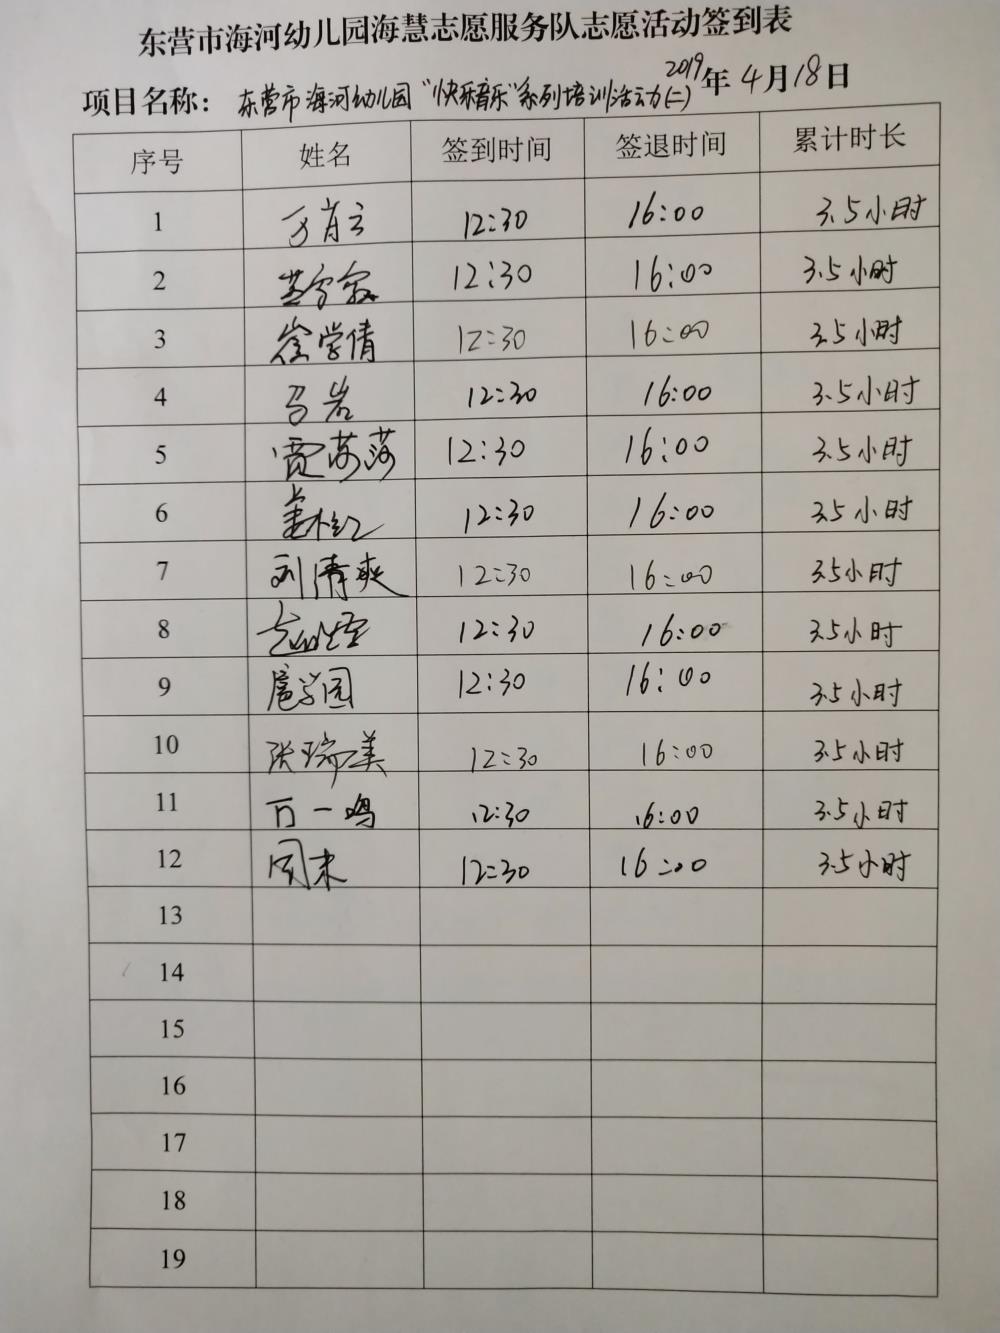 东营市海河幼儿园海慧志愿服务队志愿活动签到表
项目名称：东营市海河幼儿园“快乐音乐”系列培训活动(二) 2019年4月18日
序号 姓名 签到时间 签退时间 累计时长
1 万肖云 12:30 16:00 3.5小时
2 12:30 16:00 3.5小时
3 崔学倩 12:30 16:00 3.5小时
4 马岩 12:30 16:00 3.5小时
5 贾莎莎 12:30 16:00 3.5小时
6 12:30 16:00 3.5小时
7 刘清爽 12:30 16:00 3.5小时
8 12:30 16:00 3.5小时
9 扈学园 12:30 16:00 3.5小时
10 张瑞美 12:30 16:00 3.5小时
11 万一鸣 12:30 16:00 3.5小时
12 周末 12:30 16:00 3.5小时
13
14
15
16
17
18
19